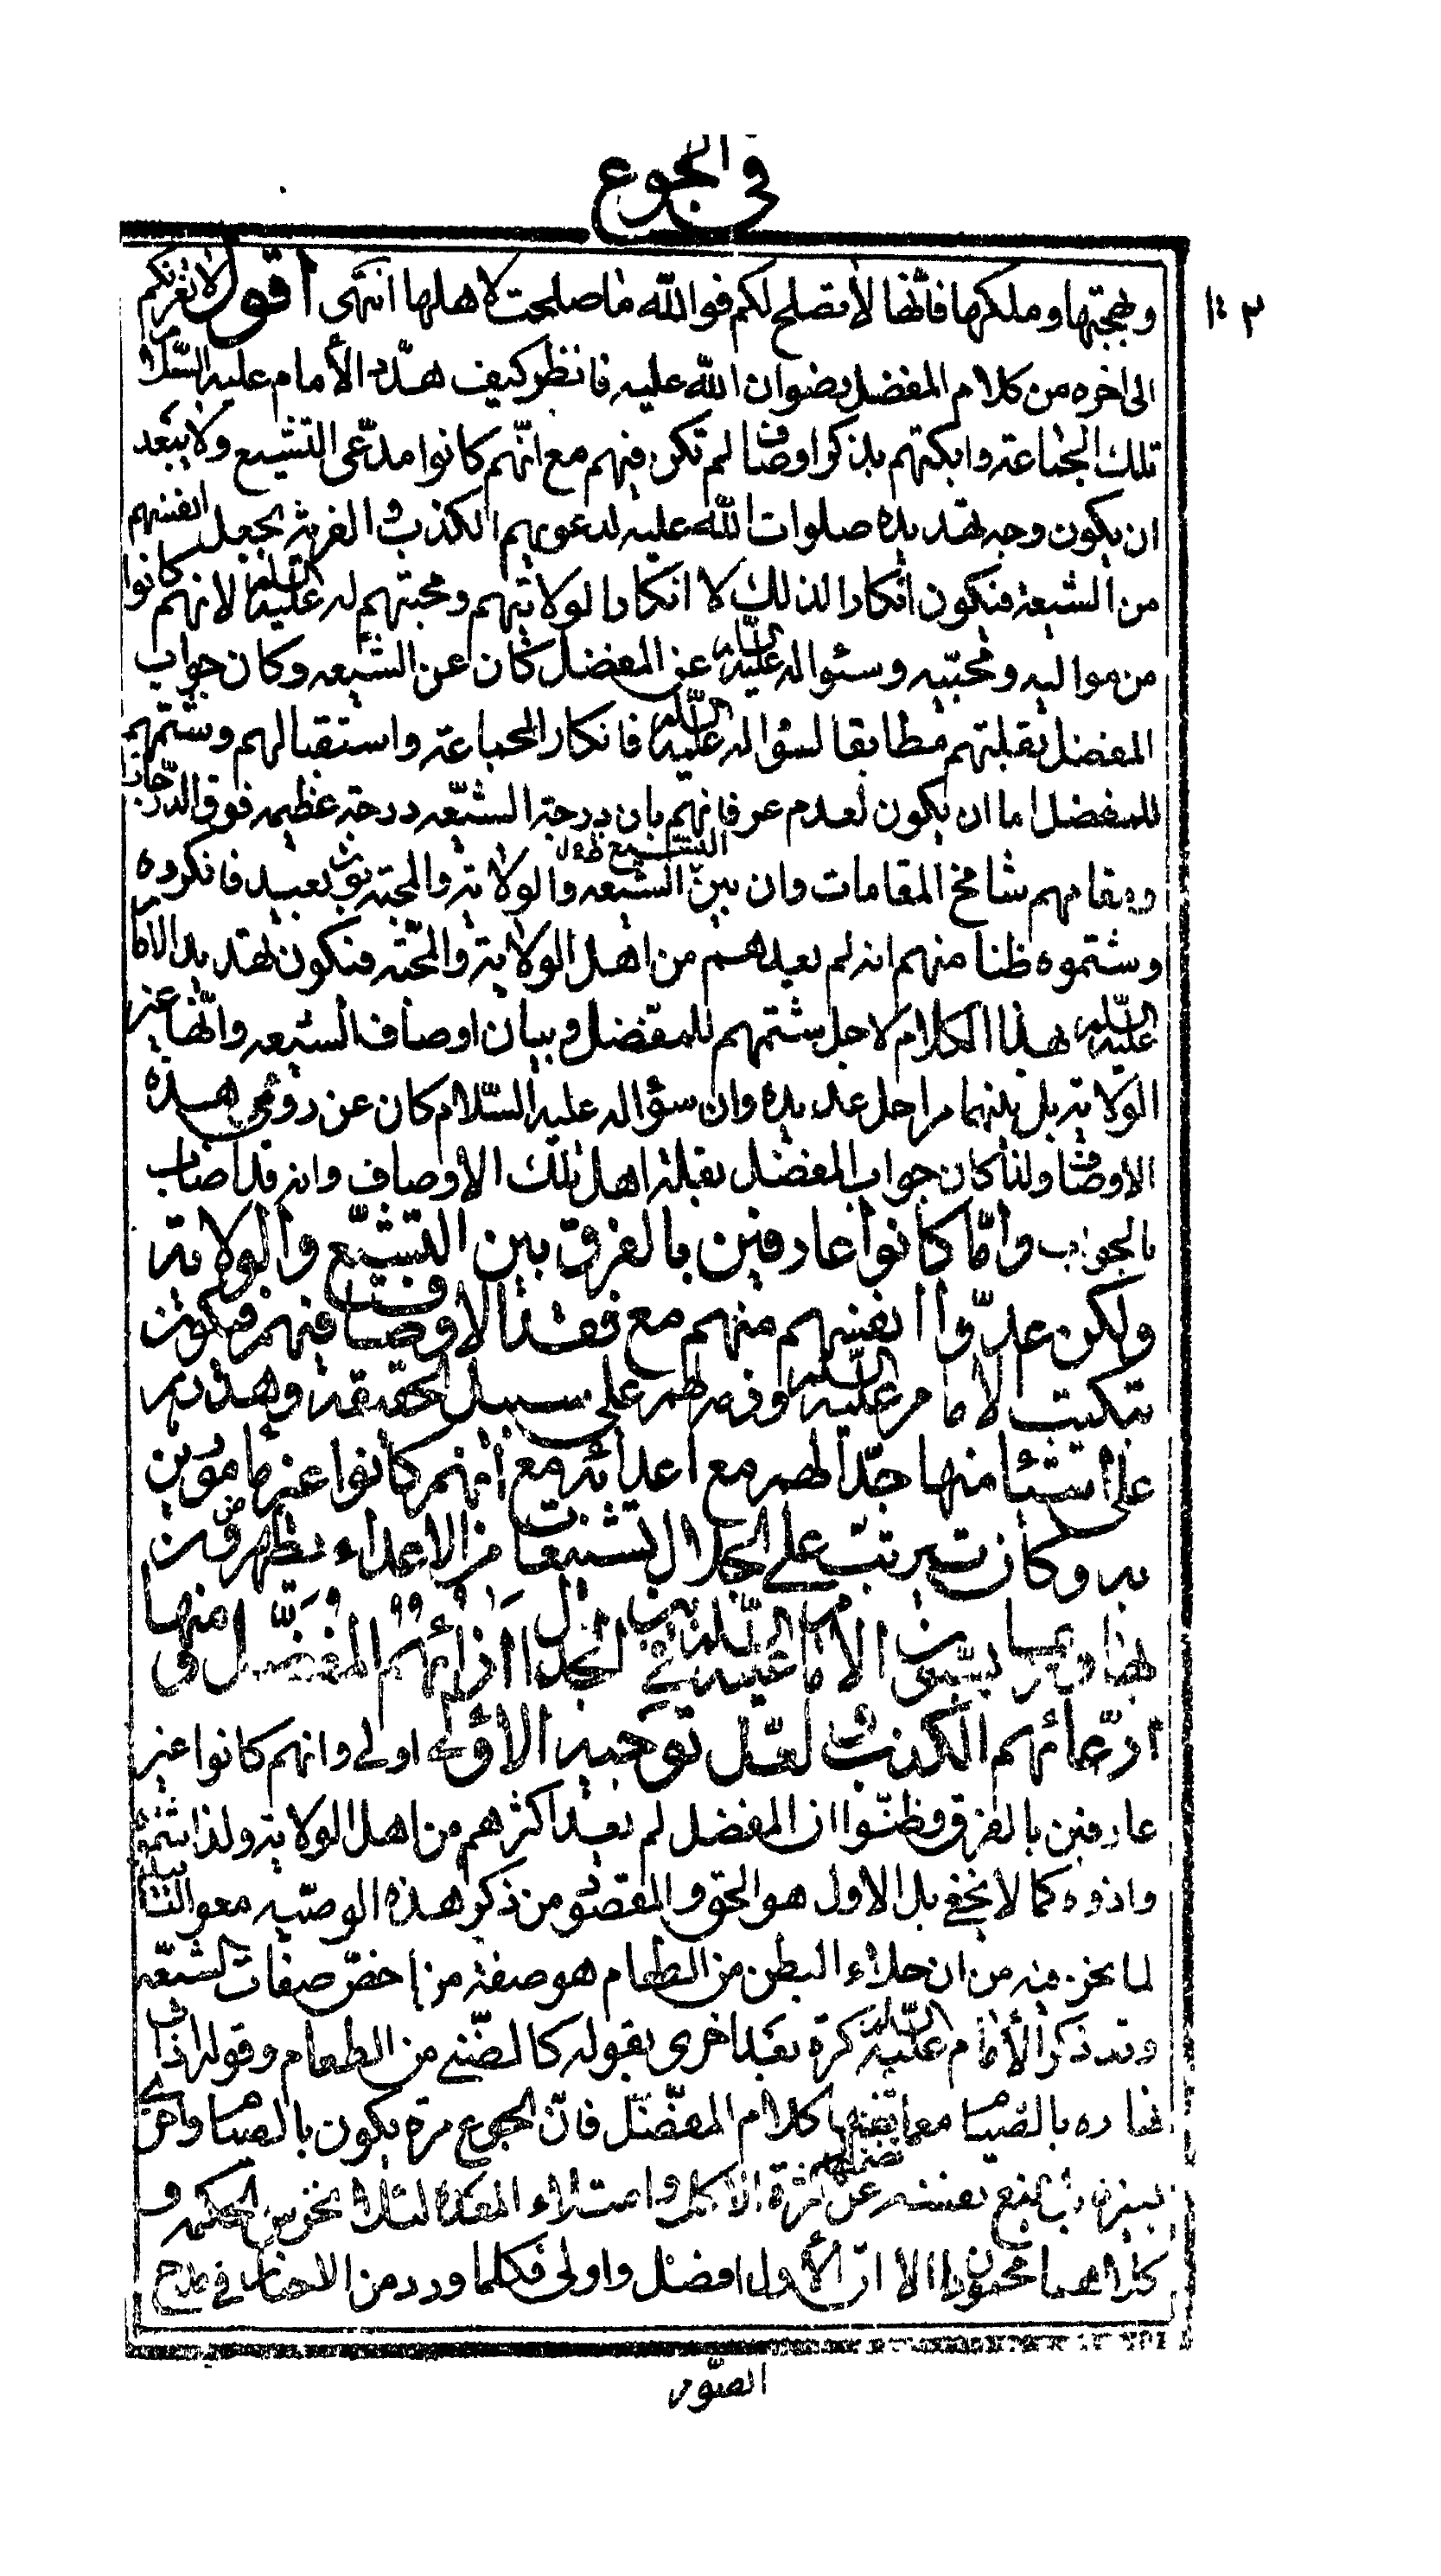 في الجوع
١٠٣
وبهجتها وملكها فانها لا تصلح لكم فوالله ما صلحت لاهلها انتهى اقول لا تغرنكم
الى اخره من كلام المفضل رضوان الله عليه فانظر كيف هدد الأمام عليه السّلام
تلك الجماعة وابكتهم بذكر اوصاف لم تكن فيهم مع انّهم كانوا مدّعى التشيع ولا يبعد
ان يكون وجه تهديده صلوات الله عليه لدعويهم الكذب و الفرية بجعل انفسهم
من الشيعة فيكون انكارا لذلك لا انكارا لولايتهم ومحبتهم له عليه السلام لانهم كانوا
من مواليه ومحبّيه وسئواله عليه السلام عن المفضل كان عن الشيعه وكان جواب
المفضل بقلتهم مطابقا لسؤاله عليه السلام فانكار الجماعة واستقبالهم وشتمهم
للمفضل اما ان يكون لعدم عرفانهم بان درجة الشيعّه درجة عظيمه فوق الدرجات
ومقامهم شامخ المقامات وان بين الشيعه والولاية والمحبة بون بعيد فانكروه
التشيع ظ ل
وشتموه ظنا منهم انه لم يعدهم من اهل الولاية والمحبّة فيكون تهديد الامام
عليه السلام هذا الكلام لاجل شتمهم للمفضل و بيان اوصاف الشيعه وانّها غير
الولاية بل بينهما مراحل عديدة وان سؤاله عليه السّلام كان عن ذوى هذه
الاوصاف ولذا كان جواب المفضل بقلة اهل تلك الاوصاف وانه قد اصاب
بالجواب وامّا كانوا عارفين بالفرق بين التشيّع والولاية
ولكن عدّوا انفسهم منهم مع فقد الاوصاف فيهم فيكون
تبكيت الامام عليه السلام وذمه لهم على سبيل الحقيقة وهذ
على منها جدّا لهم مع اعدائه مع انهم كانوا غير مامورين
به وكانت يرتب على الجدال تشنيعات من الاعداء يظهر من
الامام عليه السلام في المفضّل و منها
ادّعائهم الكذب لعّل توجيه الاوّل اولى وانهم كانوا غير
عارفين بالفرق وظنّوا ان المفضل لم يعد اكثرهم من اهل الولاية ولذا شتموه
واذوه كما لا يخفى بل الاول هو الحق و المقصود من ذكر هذه الوصيّه
لما نحن فيه من ان خلاء البطن من الطعام هو صفة من اخصّ صفات الشيعّه
وقد ذكر الأمام عليه السلام كرة بعد اخرى بقوله كالضّنى من الطعام وقوله
نهاره بالصيام كلام المفضّل فانّ الجوع مرة يكون بالصيام واخرى
يمنع نفسه عن كثرة الاكل وامتلاء المعدة لئلا يخرس الحكمه و
كلاهما محمودان الا انّ الأول افضل واولى فكلما ورد من الاخبار في مدح
الصّوم